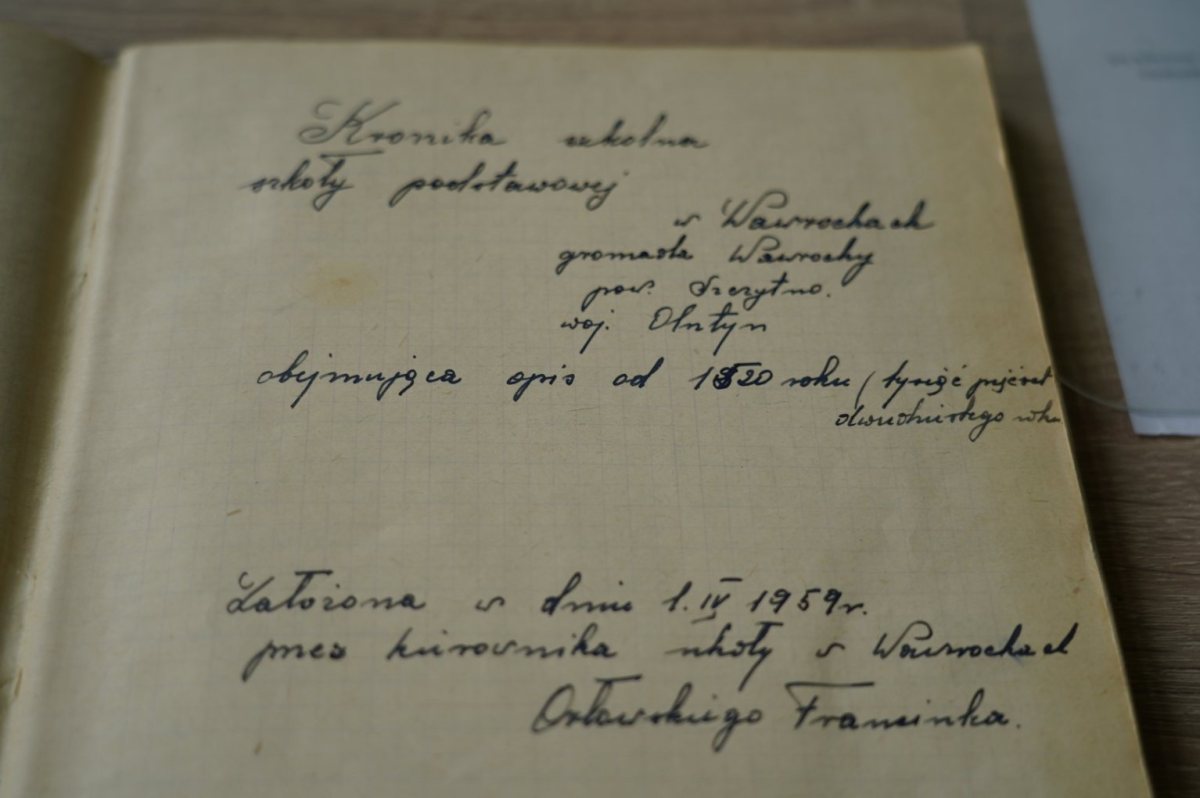 Kronika szkolna
szkoły podstawowej
w Wawrochach
gromada Wawrochy
pow. Szczytno.
woj. Olsztyn
obejmująca opis od 1520 roku (tysiąc pięćset
dwudziestego roku
Założona w dniu 1. IV 1959r.
przez kierownika szkoły w Wawrochach
Orłowskiego Franciszka.